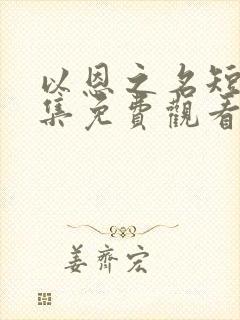 以恩之名短
集免費觀看
姜齊宏